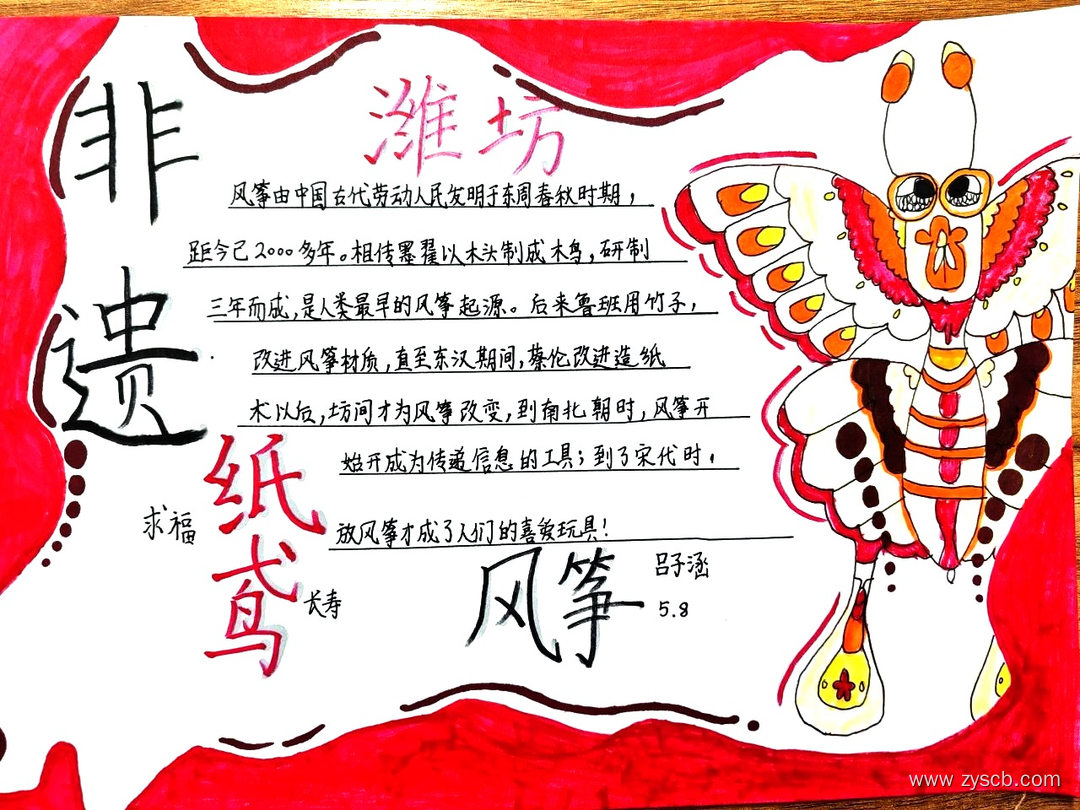 非遗
潍坊
风筝由中国古代劳动人民发明于东周春秋时期，
距今已2000多年。相传墨翟以木头制成木鸟，研制
三年而成，是人类最早的风筝起源。后来鲁班用竹子，
改进风筝材质，直至东汉期间，蔡伦改进造纸
术以后，坊间才为风筝改变，到南北朝时，风筝开
始开成为传递信息的工具；到了宋代时，
放风筝才成了人们的喜爱玩具！
纸鸢
求福
长寿
风筝
吕子涵
5.8
www.zyscb.com